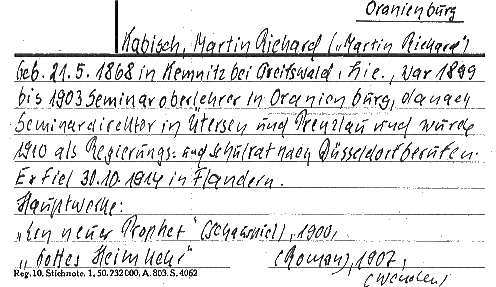 Oranienburg
Kabisch, Martin Richard („Martin Richard")
Geb. 21.5.1868 in Kemnitz bei Greifswald, war 1899
bis 1903 Seminaroberlehrer in Oranienburg, danach
Seminardirektor in Utersen und Prenzlau und wurde
1910 als Regierungs- und Schulrat nach Düsseldorf berufen.
Er fiel 30.10.1914 in Flandern.
Hauptwerke:
„Ein neuer Prophet" (Schauspiel), 1900,
„Gottes Heimkehr" (Roman), 1907,
(Wenden)
Reg. 10. Stichnote. 1, 50. 232000. A. 803. S. 4062